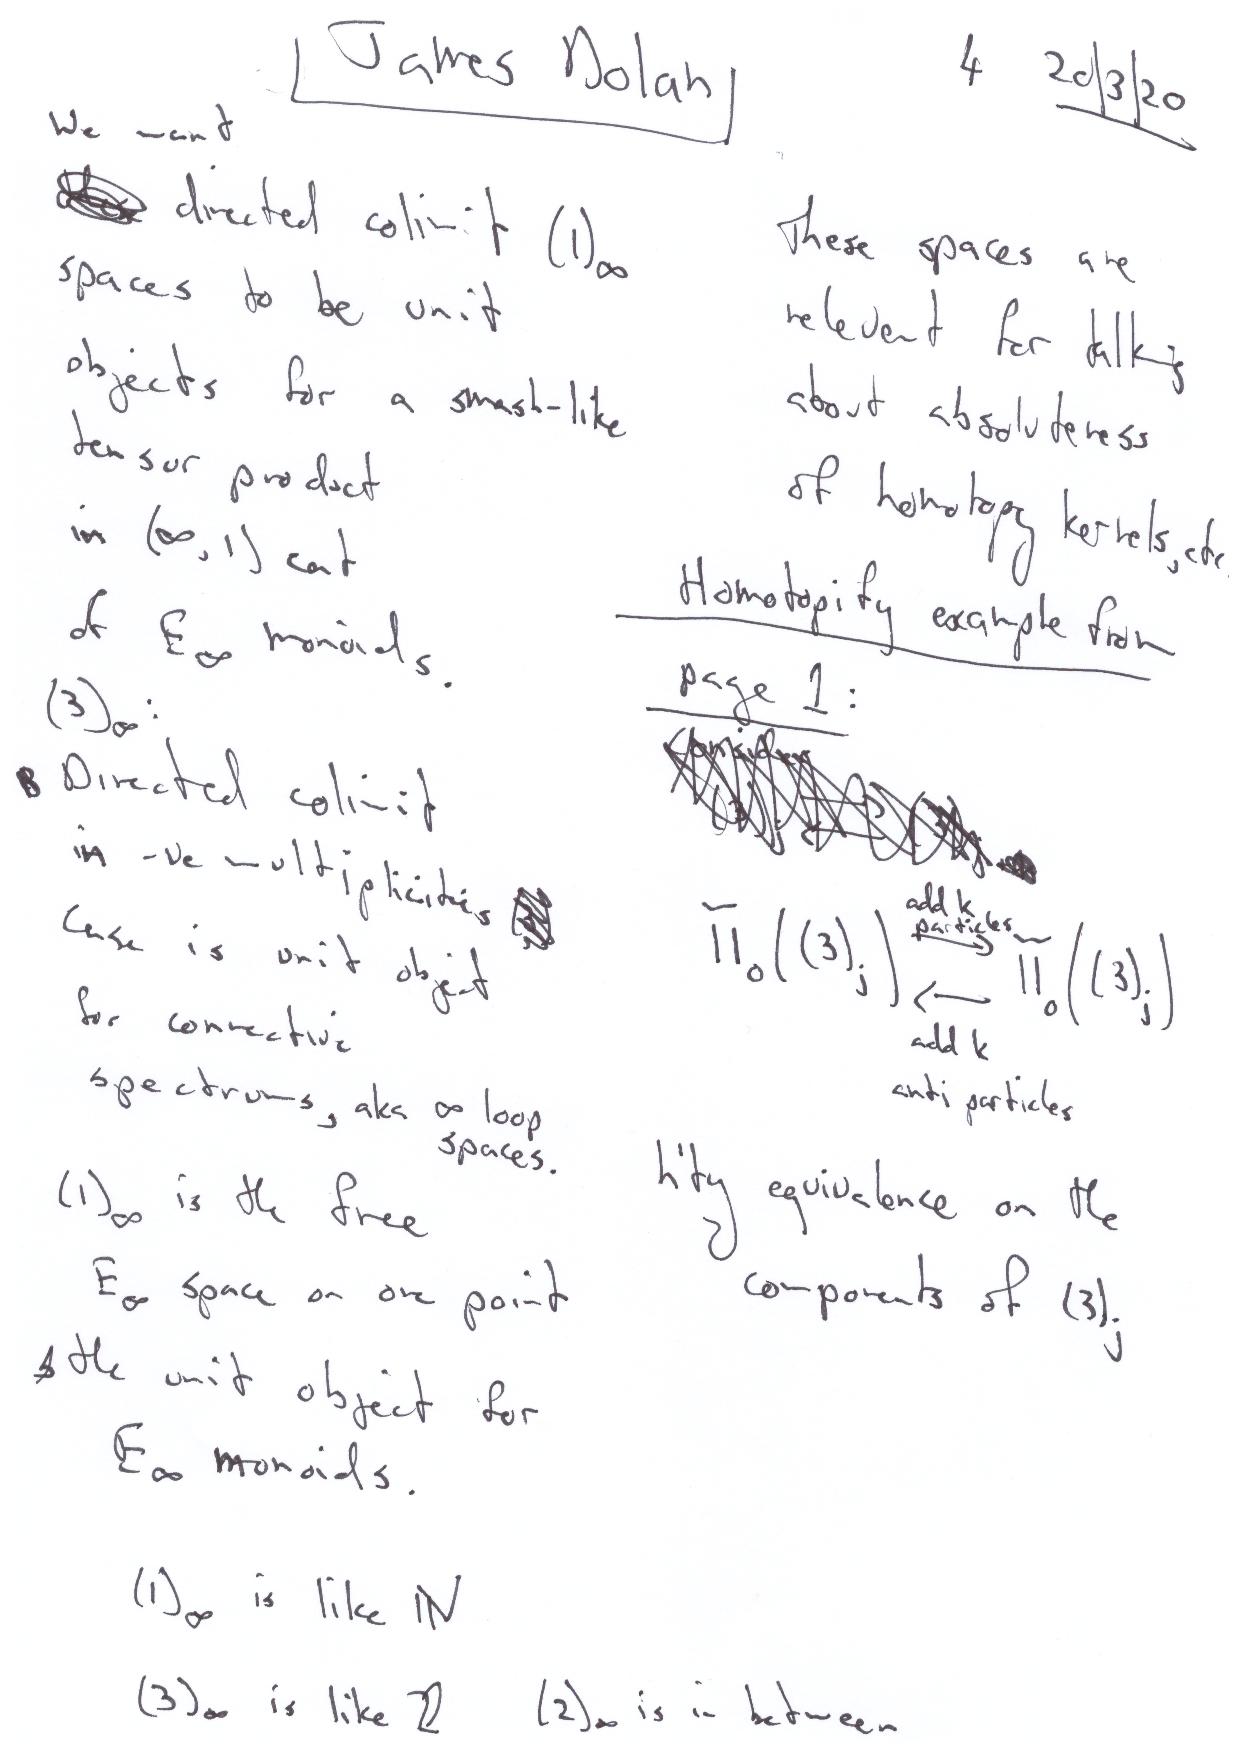 James Dolan
4 20/3/20
We want
directed colimit (1)∞
spaces to be unit
objects for a smash-like
tensor product
in (∞,1) cat
of E∞ monoids.
(3)∞:
Directed colimit
in -ve multiplicities
case is unit object
for connective
spectrums, aka ∞ loop
spaces.
(1)∞ is the free
E∞ space on one point
& the unit object for
E∞ monoids.
(1)∞ is like ℕ
(3)∞ is like ℤ (2)∞ is in between
These spaces are
relevent for talking
about absoluteness
of homotopy kernels, etc.
Homotopify example from
page 1:
Π̃₀((3)ⱼ) add k particles → ← add k anti particles Π̃₀((3)ⱼ)
h'ty equivalence on the
components of (3)ⱼ